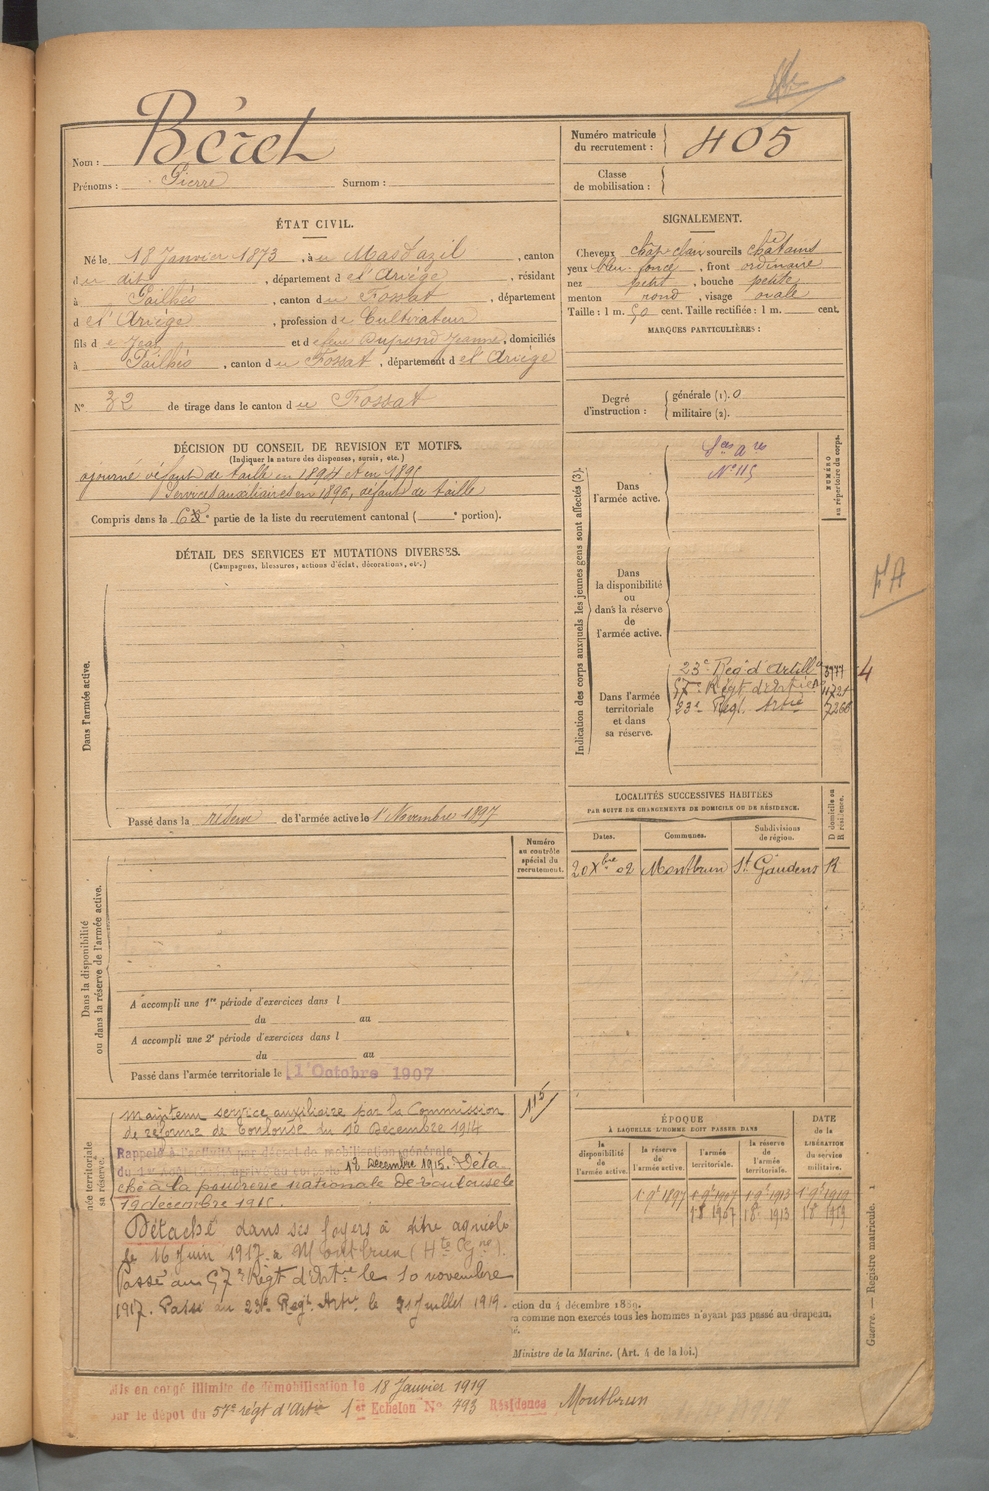 Nom : Béret
Prénoms : Pierre Surnom :
Numéro matricule du recrutement : 405
Classe de mobilisation :
ÉTAT CIVIL.
Né le 18 Janvier 1873, à u Mas d'azil, canton
du dit, département de l'Ariège, résidant
à Pailhès, canton du Fossat, département
de l'Ariège, profession de Cultivateur
fils de Jean et de feue Dupond Jeanne, domiciliés
à Pailhès, canton du Fossat, département de l'Ariège
N° 32 de tirage dans le canton du Fossat
SIGNALEMENT.
Cheveux chât. clair sourcils châtains
yeux bleu foncé, front ordinaire
nez petit, bouche petite
menton rond, visage ovale
Taille : 1 m. 50 cent. Taille rectifiée : 1 m. cent.
MARQUES PARTICULIÈRES :
Degré d'instruction : générale (1). 0
militaire (2).
DÉCISION DU CONSEIL DE REVISION ET MOTIFS.
(Indiquer la nature des dispenses, sursis, etc.)
ajourné défaut de taille en 1894 et en 1895
Services auxiliaires en 1896, défaut de taille
Compris dans la 6e partie de la liste du recrutement cantonal ( e portion).
DÉTAIL DES SERVICES ET MUTATIONS DIVERSES.
(Campagnes, blessures, actions d'éclat, décorations, etc.)
Dans l'armée active.
Passé dans la réserve de l'armée active le 1er Novembre 1897
Indication des corps auxquels les jeunes gens sont affectés (3).
NUMÉRO au répertoire du corps.
Dans l'armée active.
N° 115
Dans la disponibilité ou dans la réserve de l'armée active.
Dans l'armée territoriale et dans sa réserve.
23e Reg d'Artill
57e Régt d'Artie
23e Regt Artie 7266
FA
LOCALITÉS SUCCESSIVES HABITÉES
PAR SUITE DE CHANGEMENTS DE DOMICILE OU DE RÉSIDENCE.
D domicile ou R résidence.
Dates. Communes. Subdivisions de région.
20 Xbre 02 Montbrun St Gaudens R
Numéro au contrôle spécial du recrutement.
115
Dans la disponibilité ou dans la réserve de l'armée active.
A accompli une 1re période d'exercices dans l
du au
A accompli une 2e période d'exercices dans l
du au
Passé dans l'armée territoriale le 1er Octobre 1907
ée territoriale
sa réserve.
maintenu service auxiliaire par la Commission
de réforme de Toulouse du 10 Décembre 1914
Rappelé à l'activité par décret de mobilisation générale
du 1er Août 18 Décembre 1915. Déta
ché à la poudrerie nationale de Toulouse le
19 décembre 1915.
Détaché dans ses foyers à titre agricole
le 16 Juin 1917 à Montbrun (Hte Gne).
Passé au 57e Régt d'Artie le 10 novembre
1917. Passé au 23e Regt Artie le 31 Juillet 1919.
ÉPOQUE
À LAQUELLE L'HOMME DOIT PASSER DANS
DATE de la LIBÉRATION du service militaire.
la disponibilité de l'armée active.
la réserve de l'armée active.
l'armée territoriale.
la réserve de l'armée territoriale.
1 9e 1897 1 9e 1907 1 9e 1913 1 9e 1919
1 8e 1907 1 8e 1913 1 8e 1919
ction du 4 décembre 1889.
ra comme non exercés tous les hommes n'ayant pas passé au drapeau.
é.
Ministre de la Marine. (Art. 4 de la loi.)
Guerre. — Registre matricule. 1
Mis en congé illimité de démobilisation le 18 Janvier 1919
par le dépôt du 57e régt d'Artie 1er Echelon N° 793 Résidence Montbrun